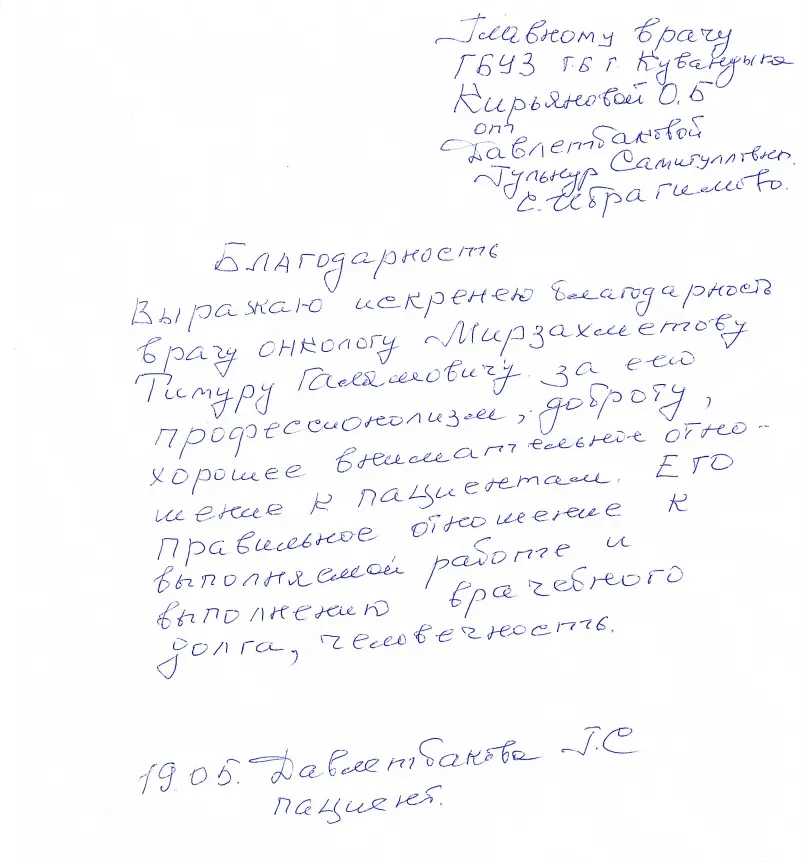 Главному врачу
ГБУЗ Г.Б г Кувандыка
Кирьяновой О.Б
опт
Давлетбаковой
Гульнур Самигулловн.
с. Ибрагимово.
Благодарность
Выражаю искренею благодарность
врачу онкологу Мирзахметову
Тимуру Галимовичу за его
професcионолизм, доброту,
хорошее внимательное отно-
шение к пациентам. Его
правильное отношение к
выполняемой работе и
выполнению врачебного
долга, человечность.
19.05. Давлетбакова Г.С
пациент.